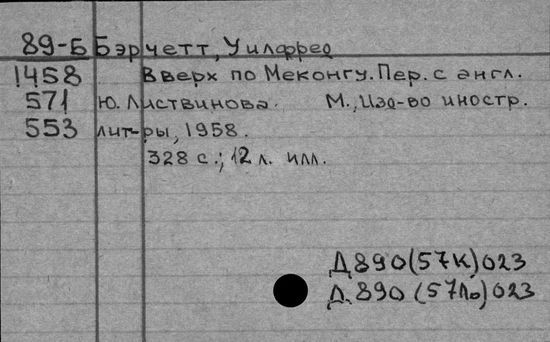 89-Б Бэрчетт, Уилфред
1458 Вверх по Меконгу. Пер. с англ.
571 Ю. Листвинова. М., Изд-во иностр.
553 лит-ры, 1958.
328 с.; 12 л. илл.
Д890(57К)023
Д.890 (57Ло)023